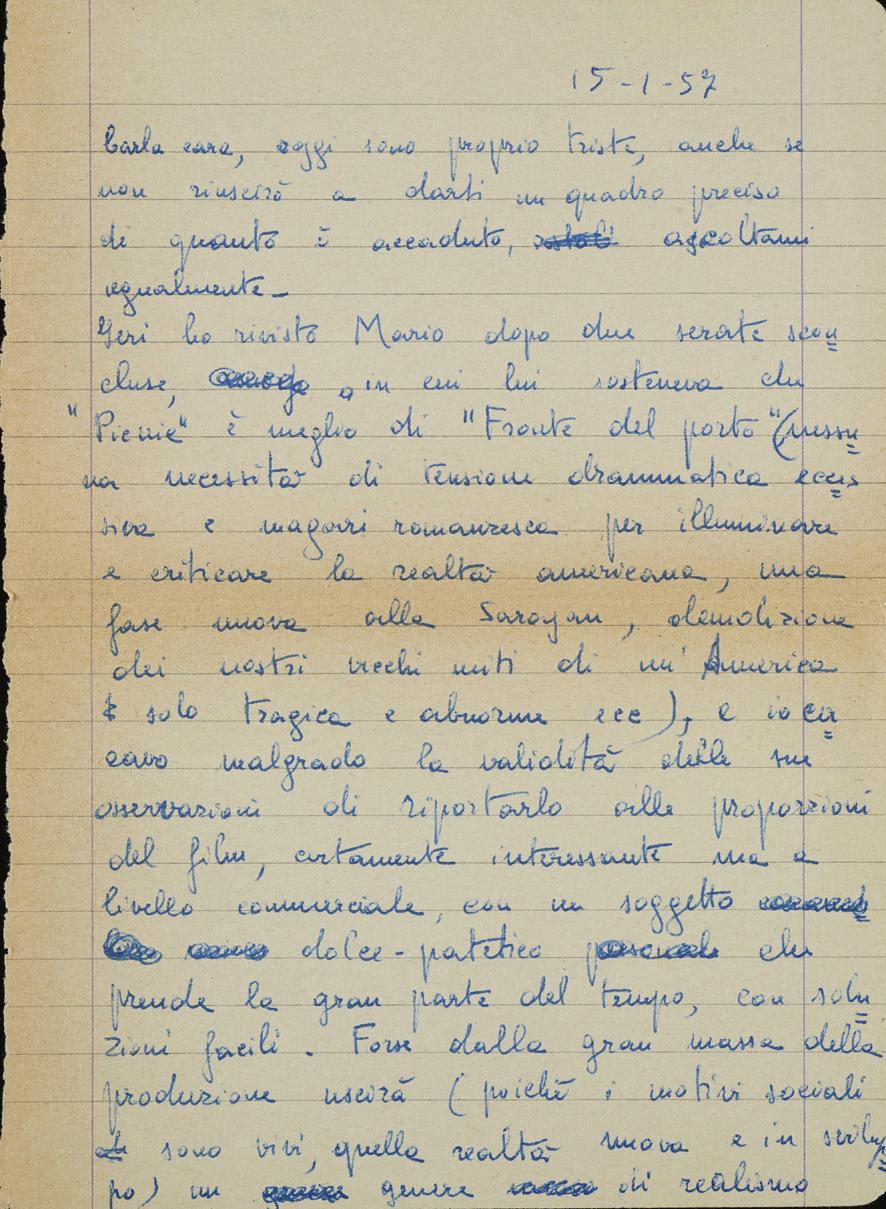 15-1-57
Carla cara, oggi sono proprio triste, anche se
non riuscirò a darti un quadro preciso
di quanto è accaduto, ascoltami
egualmente -
Ieri ho rivisto Mario dopo due serate scon
cluse, in cui lui sosteneva che
"Picnic" è meglio di "Fronte del porto" (nessu
na necessità di tensione drammatica ecces
siva e magari romanzesca per illuminare
e criticare la realtà americana, una
fase nuova alla Saroyan, demolizione
dei nostri vecchi miti di un'America
solo tragica e abnorme ecc), e io cer
cavo malgrado la validità delle sue
osservazioni di riportarlo alle proporzioni
del film, certamente interessante ma a
livello commerciale, con un soggetto
dolce-patetico che
prende la gran parte del tempo, con solu
zioni facili. Forse dalla gran massa della
produzione uscirà (poiché i motivi sociali
sono vivi, quella realtà nuova e in svilup
po) un genere di realismo